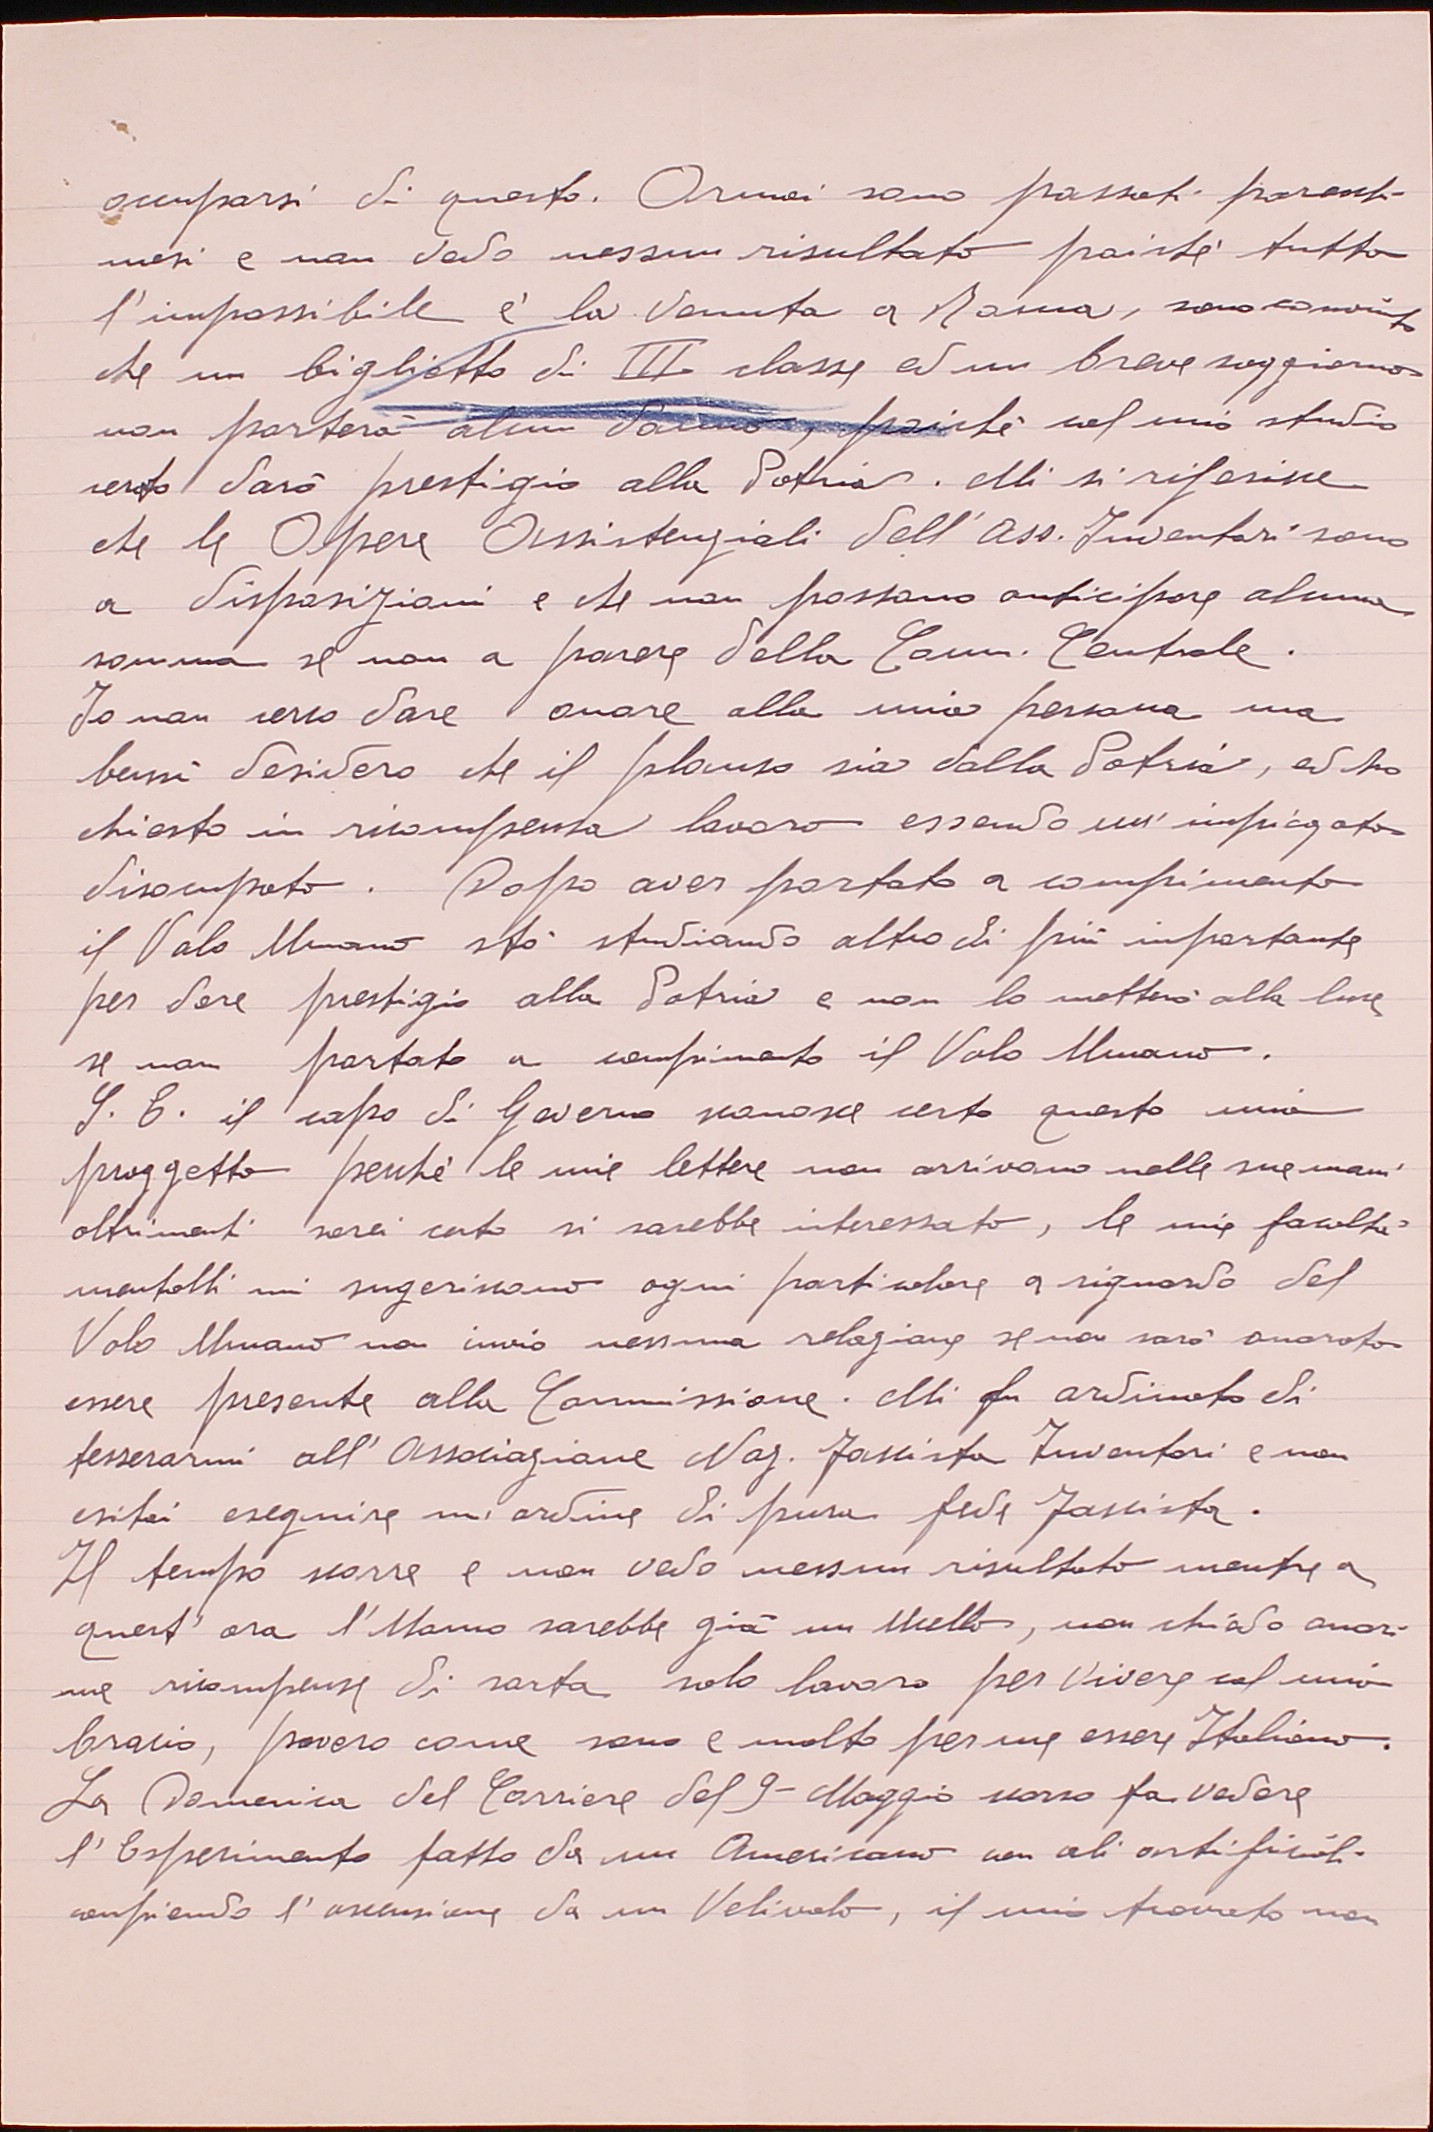 occuparsi di questo. Ormai sono passati parecchi
mesi e non vedo nessun risultato poichè tutto
l'impossibile è la venuta a Roma, sono convinto
che un biglietto di III classe ed un breve soggiorno
non porterà alcun danno, poichè col mio studio
certo darò prestigio alla Patria. Mi si riferisce
che le Opere Assistenziali dell'Ass. Inventori sono
a disposizioni e che non possono anticipare alcuna
somma se non a parere della Comm. Centrale.
Io non cerco dare onore alla mia persona ma
bensì desidero che il plauso sia dalla Patria, ed ho
chiesto in ricompensa lavoro essendo un'impiegato
disoccupato. Dopo aver portato a compimento
il Volo Umano stò studiando altro di più importante
per dare prestigio alla Patria e non lo metterò alla luce
se non portato a compimento il Volo Umano.
S. E. il capo di Governo sconosce certo questo mio
proggetto perchè le mie lettere non arrivano nelle sue mani
altrimenti sarei certo si sarebbe interessato, le mie facoltà
mentalli mi sugeriscono ogni particolare a riguardo del
Volo Umano non invio nessuna relazione se non sarò onorato
essere presente alla Commissione. Mi fu ordinato di
tesserarmi all'Associazione Naz. Fascista Inventori e non
esitai eseguire un'ordine di pura fede Fascista.
Il tempo scorre e non vedo nessun risultato mentre a
quest'ora l'Uomo sarebbe già un Ucello, non chiedo onori
ne ricompense di sorta solo lavoro per vivere col mio
bracio, povero come sono e molto per me essere Italiano.
La Domenica del Corriere del 9- Maggio scorso fa vedere
l'Esperimento fatto da un Americano con ali artificiali
compiendo l'ascensione da un Velivolo, il mio trovato non